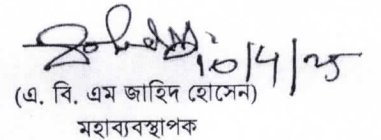 10/4/25
(এ. বি. এম জাহিদ হোসেন)
মহাব্যবস্থাপক